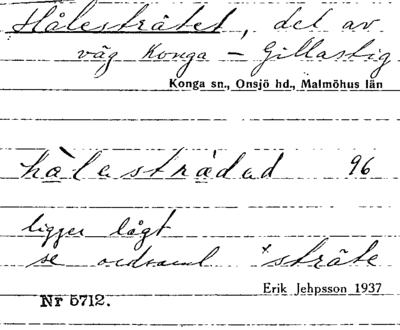 Hålesträtet, del av
väg Konga - Gillastig
Konga sn., Onsjö hd., Malmöhus län
hålesträded 96
ligger lågt
se ordsaml *sträte
Erik Jehpsson 1937
Nr 5712.